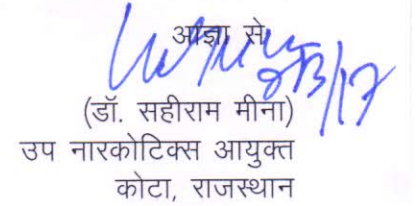 आज्ञा से
(डॉ. सहीराम मीना)
उप नारकोटिक्स आयुक्त
कोटा, राजस्थान